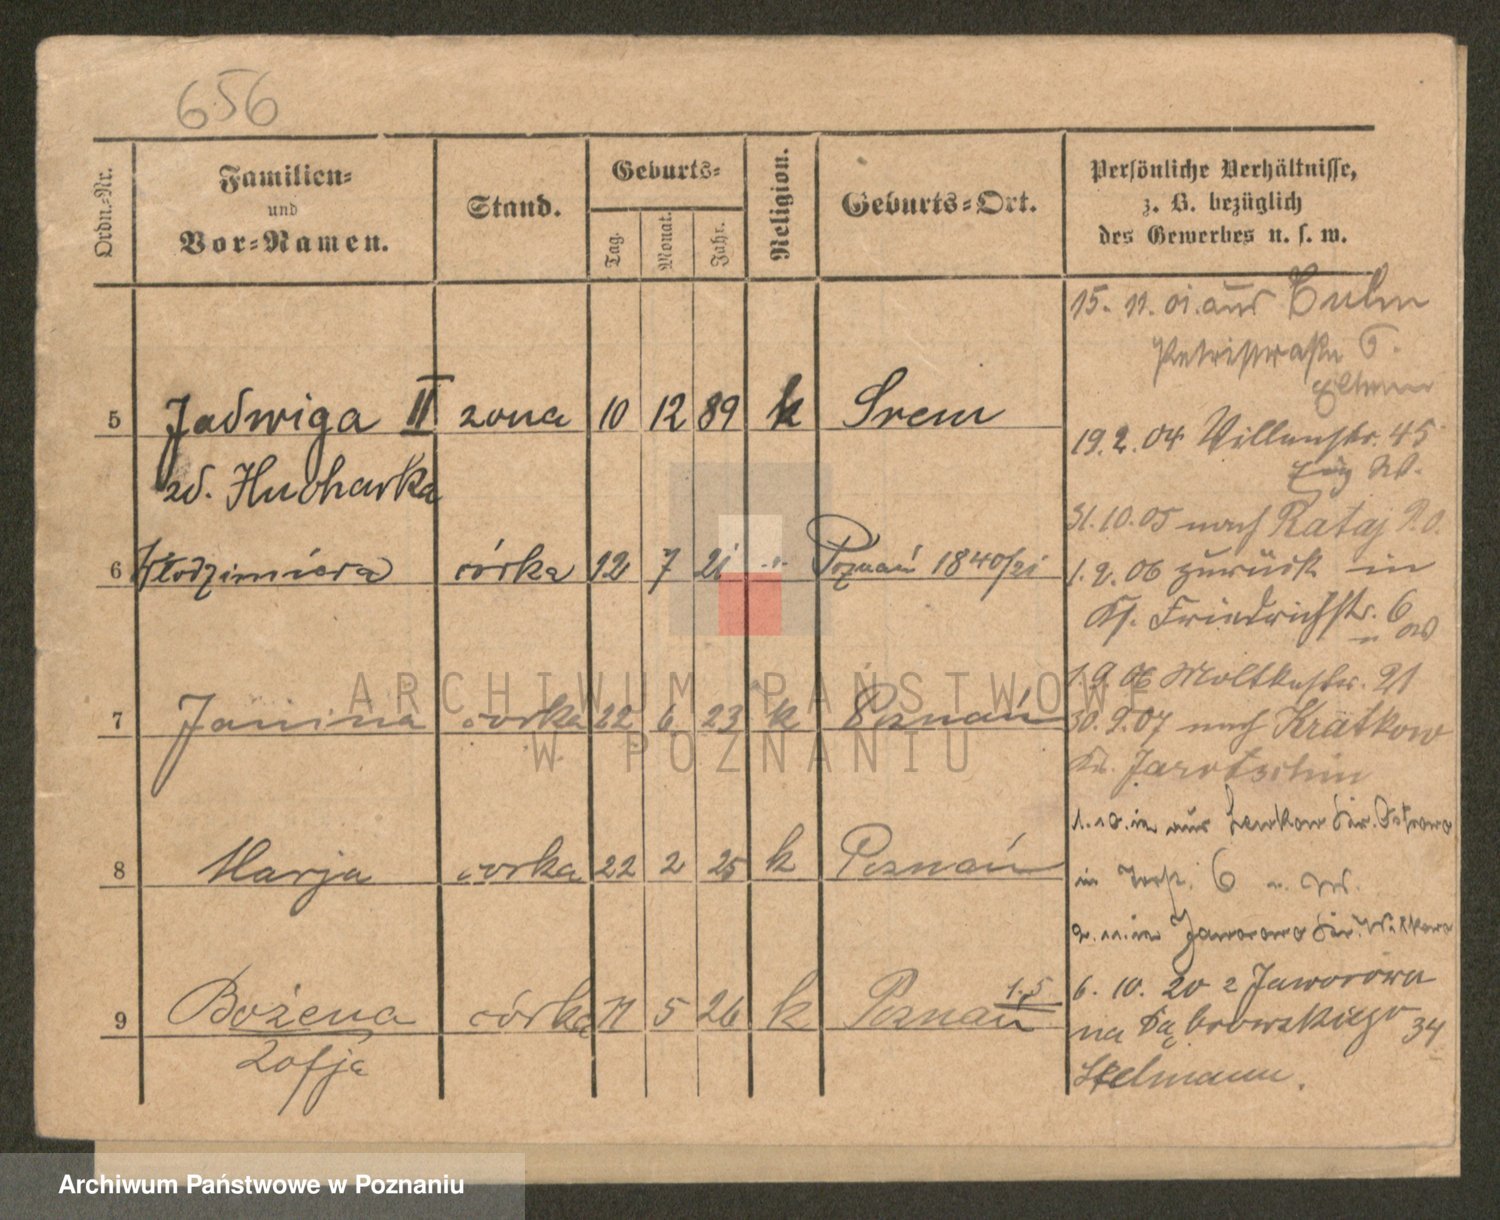 656
Ordn.-Nr.
Familien-
und
Vor-Namen.
Stand.
Geburts-
Tag.
Monat.
Jahr.
Religion.
Geburts-Ort.
Persönliche Verhältnisse,
z. B. bezüglich
des Gewerbes u. s. w.
15. 11. 01. aus Culm
Petristraße 6.
Eltern
5 Jadwiga II żona 10 12 89 k Srem
19.2.04 45
zd. Kucharka
31.10.05 nach Rataj P.O.
6 Włodzimiera córka 12 7 21 " Poznań 1840/21
1.2.06 zurück in
Kl. Friedrichstr. 6
1.9.06 Moltkestr. 21
7 Janina córka 22 6 23 k Poznań
30.9.07 nach Krätkow
Kr. Jarotschin
aus
8 Marja córka 22 2 25 k Poznań
in 6
1.5
6. 10. 20 z Jaworowa
9 Bożena córka 11 5 26 k Poznań
na Dąbrowskiego 34
Zofja
Stelmann.
ARCHIWUM PAŃSTWOWE
W POZNANIU
Archiwum Państwowe w Poznaniu